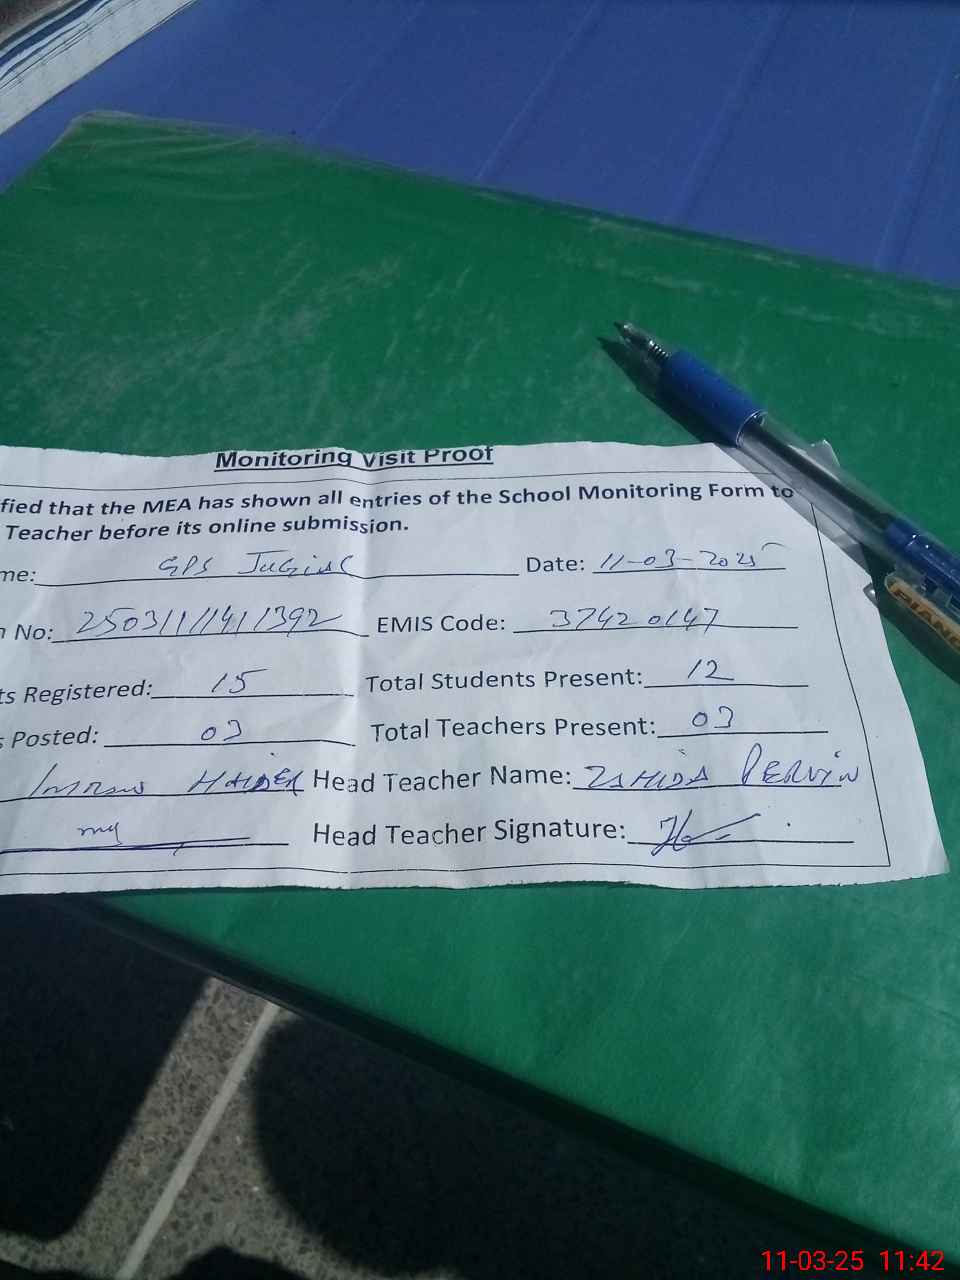 Monitoring Visit Proof
fied that the MEA has shown all entries of the School Monitoring Form to
Teacher before its online submission.
me: GPS Date: 11-03-2025
No: EMIS Code: 37420147
ts Registered: 15 Total Students Present: 12
s Posted: 03 Total Teachers Present: 03
HAIDER Head Teacher Name: ZAHIDA PERVIN
Head Teacher Signature:
PIANO
11-03-25 11:42